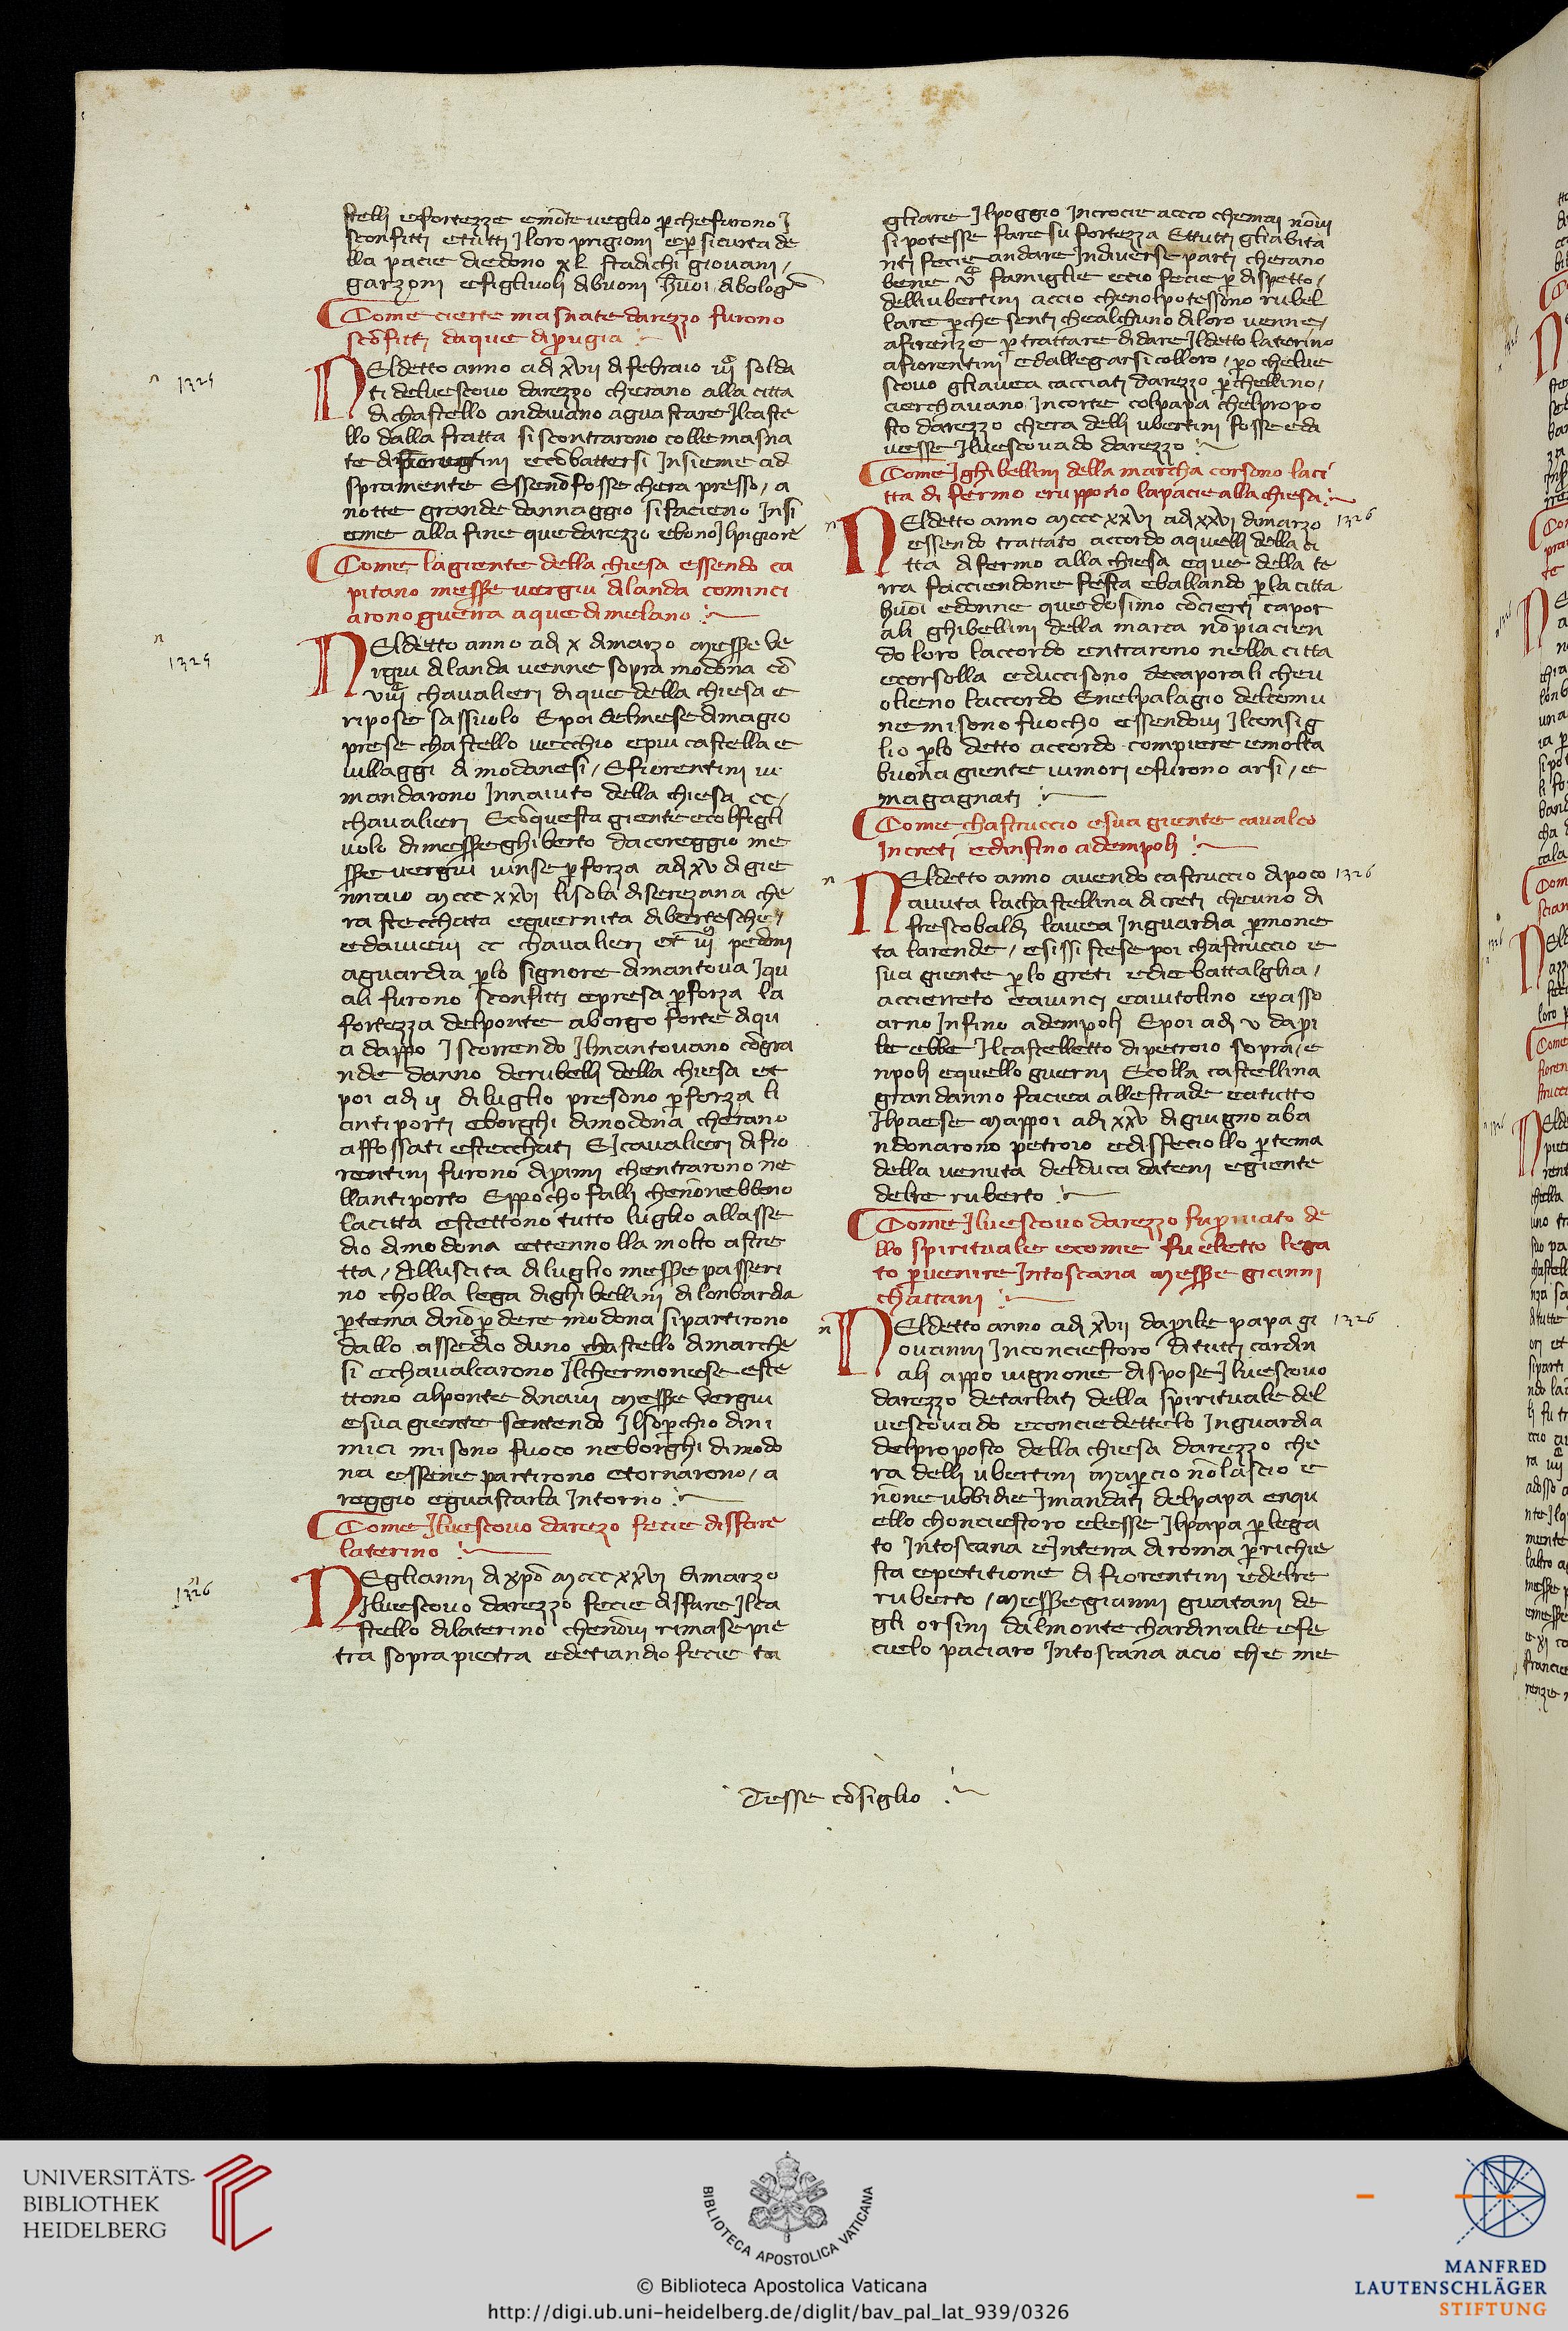 stelli e fortezze e mōte veglio p̄che furono I
sconfitti e tutti I loro prigioni e p̄ sicurta de
lla pacie diedono xl stadichi giovani /
garzoni e figliuoli di buoni huōi di bologā
Come cierte masnate darezzo furono
scōfitti da que di p̄ugia
n 1325
Nel detto anno adi xvii di febraio iiiic solda
ti del vescovo darezzo cherano alla citta
di chastello andavano a guastare Il caste
llo dalla fratta si scontrarono colle masna
te di ecōbattersi Insieme ad
spramente Essendo fosse chera presso / a
notte grande dannaggio si facieno Insi
eme alla fine que darezzo ebono Il pigiore
Come la giente della chiesa essendo ca
pitano messer vergiu di landa cominci
arono guerra a que di melano
n 1325
Nel detto anno adi x di marzo messer ve
rgiu di landa venne sopra modona cō
viiic chavalieri di que della chiesa e
ripose sassuolo E poi del mese di magio
prese chastello vecchio e piu castella e
villaggi di modanesi / E fiorentini vi
mandarono Innaiuto della chiesa cc /
chavalieri E cō questa giente e col figli
volo di messer ghiberto da coreggio me
sser vergiu vinse p̄ forza adi xv di gie
nnaio mcccxxvi lisola di serezana che
ra stecchata e guernita di bertesche /
e daveavi cc chavalieri et iic pedoni
a guardia p̄ lo signore di mantova I qu
ali furono sconfitti e presa p̄ forza la
fortezza del ponte a borgo forte di qu
a dappo I scorrendo Il mantovano cō gra
nde danno de rubelli della chiesa et
poi adi ij di luglio presono p̄ forza li
anti porti e borghi di modona cherano
affossati e stecchati E I cavalieri di fio
rentini furono di primi chentrarono ne
llanti porto E ppocho falli che nōnebbono
la citta e stettono tutto luglio allasse
dio di modona e ttennolla molto astre
tta / Alluscita di luglio messer passeri
no cholla lega di ghibellini di lonbardia
p̄ tema di nō p̄dere modona si partirono
dallo assedio duno chastello di marche
si e chavalcarono Il chermonese e ste
ttono al ponte di navi messer vergiu
e sua giente sentendo Il sop̄chio di ni
mici misono fuoco ne borghi di modo
na e ssene partirono e tornarono / a
reggio e guastarla Intorno
Come Il vescovo darezo fecie disfare
laterino
1326
Negli anni di xp̄o mcccxxvi di marzo
Il vescovo darezzo fecie disfare Il ca
stello di laterino che nōvi rimase pie
tra sopra pietra ed etiandio fecie ta
gliare Il poggio In crocie accio che mai nōvi
si potesse fare su fortezza E ttutti gli abita
nti fecie andare In diverse parti cherano
bene vc famiglie e cio fecie p̄ dispetto /
delli ubertini accio che nol potessono rubel
lare p̄che senti che alchuno di loro venne /
a firenze p̄ trattare di dare Il detto laterino
a fiorentini e dallegarsi colloro / p̄o chelve
scovo gli avea cacciati darezzo p̄che llino /
cierchavano In corte col papa chel propo
sto darezzo chera delli ubertini fosse e da
vesse Il vescovado darezzo
Come I ghibellini della marcha corsono la ci
tta di fermo e ruppono la pacie alla chiesa
n 1326
Nel detto anno mcccxxvi adi xxvi di marzo
essendo trattato accordo a quelli della ci
tta di fermo alla chiesa e que della te
rra facciendone festa e ballando p̄ la citta
huōi e donne quedesimo cō cierti capor
ali ghibellini della marca nō piacien
do loro laccordo entrarono nella citta
e corsolla e duccisono de caporali che v
olieno laccordo E nel palagio del comu
ne misono fuocho essendovi Il consig
lio p̄ lo detto accordo compiere e molta
buona giente vi mori e furono arsi / e
magagnati
Come chastruccio e sua giente cavalco
In creti e dinfino ad empoli
n 1326
Nel detto anno avendo castruccio di poco
avuta la chastellina di creti che uno di
frescobaldi lavea In guardia p̄ mone
ta larende / e sissi stese poi chastruccio e
sua giente p̄ lo greti e die battalglia /
a ccierreto e a vinci e a vitolino e passo
arno Infino ad empoli E poi adi v dapri
le ebbe Il castelletto di petroio sopra / e
npoli e quello guerni E colla castellina
gran danno faciea alle strade e a tutto
Il paese Mappoi adi xxv di giugno aba
ndonarono petroio e disfeciollo p̄ tema
della venuta del duca dateni e giente
del re ruberto
Come Il vescovo darezzo fu p̄ivato de
llo spirituale e come fu eletto lega
to p̄ venire In toscana messer gianni
chattani
n 1326
Nel detto anno adi xvii daprile papa gi
ovanni In conciestoro di tutti cardin
ali appo vignone dispose Il vescovo
darezzo de tarlati della spirituale del
vescovado e conciedettelo In guardia
del proposto della chiesa darezzo che
ra delli ubertini Ma p̄cio nō lascio e
nōne ubbidie I mandati del papa e n qu
ello chonciestoro elesse Il papa p̄ lega
to In toscana e In terra di roma p̄ richie
sta e petitione di fiorentini e del re
ruberto / Messer gianni guatani de
gli orsini dal monte chardinale e fe
cielo paciaro In toscana acio che me
Tesse cōsiglio
UNIVERSITÄTS-
BIBLIOTHEK
HEIDELBERG
BIBLIOTECA APOSTOLICA VATICANA
© Biblioteca Apostolica Vaticana
http://digi.ub.uni-heidelberg.de/diglit/bav_pal_lat_939/0326
MANFRED
LAUTENSCHLÄGER
STIFTUNG